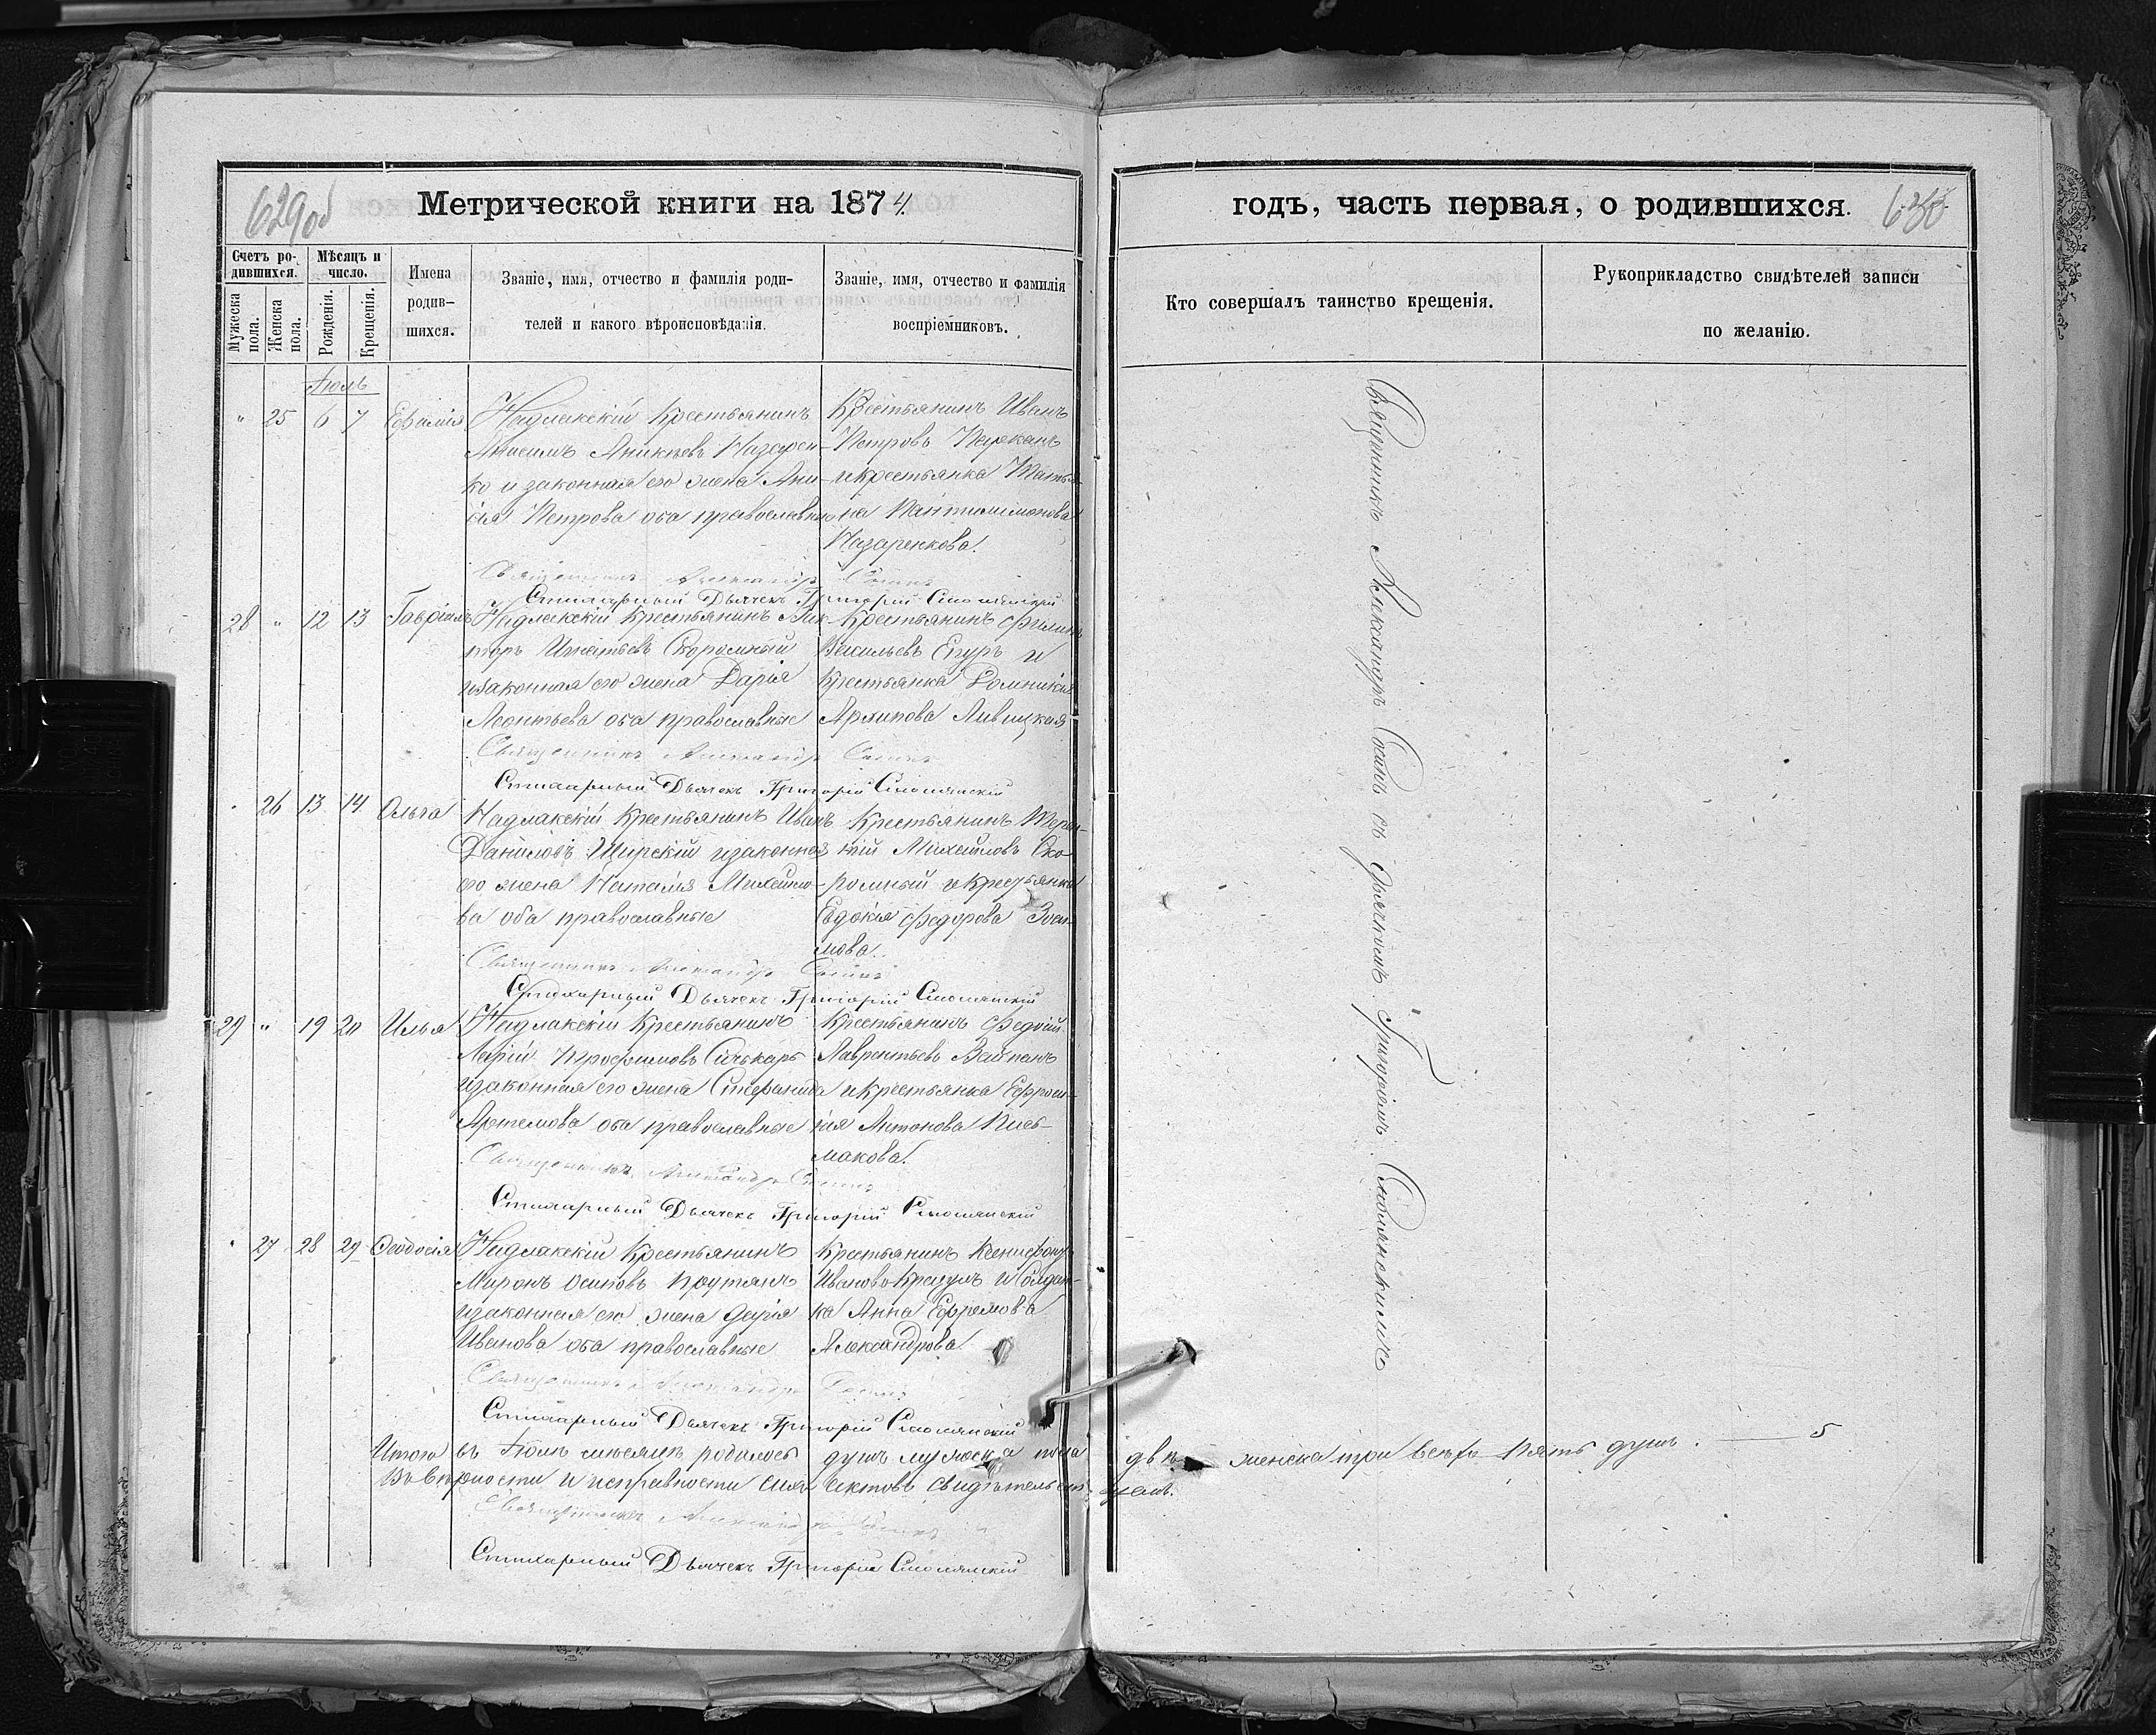 629об
Метрической книги на 1874.
Счетъ ро-
дившихся.
Мужеска
пола.
Женска
пола.
Мѣсяцъ и
число.
Рожденія.
Крещенія.
Имена
родив-
шихся.
Званіе, имя, отчество и фамилія роди-
телей и какого вѣроисповѣданія.
Званіе, имя, отчество и фамилія
воспріемниковъ.
Іюль
" 25 6 7
Надлакскій Крестьянинъ
Анисимъ Аникіевъ Назарен-
ко и законная его жена
Петрова оба православные
Крестьянинъ Иванъ
Петровъ
и крестьянка Татья-
на Пантилимонова
Назаренкова.
Священникъ Александръ
Стихарный Дьячекъ Григорій Смолянскій
28 " 12 13 Гавріилъ
Надлакскій Крестьянинъ Вик-
торъ Игнатьевъ Скоромный
и законная его жена Дарія
Леонтьева оба православные
Крестьянинъ Филипъ
Васильевъ Егуръ и
Крестьянка Домникія
Архипова Ливицкая
Священникъ Александръ
Стихарный Дьячекъ Григорій Смолянскій
" 26 13 14 Ольга
Надлакскій Крестьянинъ Иванъ
Даниловъ Ширскій и законная
его жена Наталія Михайло-
ва оба православные
Крестьянинъ Терен-
тій Михайловъ Ско-
ромный и Крестьянка
Евдокія Федорова
Священникъ Александръ
Стихарный Дьячекъ Григорій Смолянскій
29 " 19 20 Илья
Надлакскій Крестьянинъ
Трофимовъ Сичкарь
и законная его жена Стефанида
Артемова оба православные
Крестьянинъ Федоръ
Лаврентьевъ
и Крестьянка Ефроси-
нія Антонова Пись-
макова.
Священникъ Александръ
Стихарный Дьячекъ Григорій Смолянскій
" 27 28 29 Феодосія
Надлакскій Крестьянинъ
Миронъ Осиповъ
и законная его жена Дарія
Иванова оба православные
Крестьянинъ Ксенофонъ
Ивановъ и Солдат-
ка Анна Ефремова
Александрова
Священникъ Александръ
Стихарный Дьячекъ Григорій Смолянскій
Итого въ Іюлѣ мѣсяцѣ родилось душъ мужеска пола
Въ вѣрности и исправности сихъ актовъ свидѣтельст-
Священникъ Александръ
Стихарный Дьячекъ Григорій Смолянскій
годъ, часть первая, о родившихся. 630
Кто совершалъ таинство крещенія.
Рукоприкладство свидѣтелей записи
по желанію.
Священникъ Александръ съ дьячкомъ Григоріемъ Смолянскимъ
двѣ женска три всѣхъ пять душъ. 5
вуемъ.